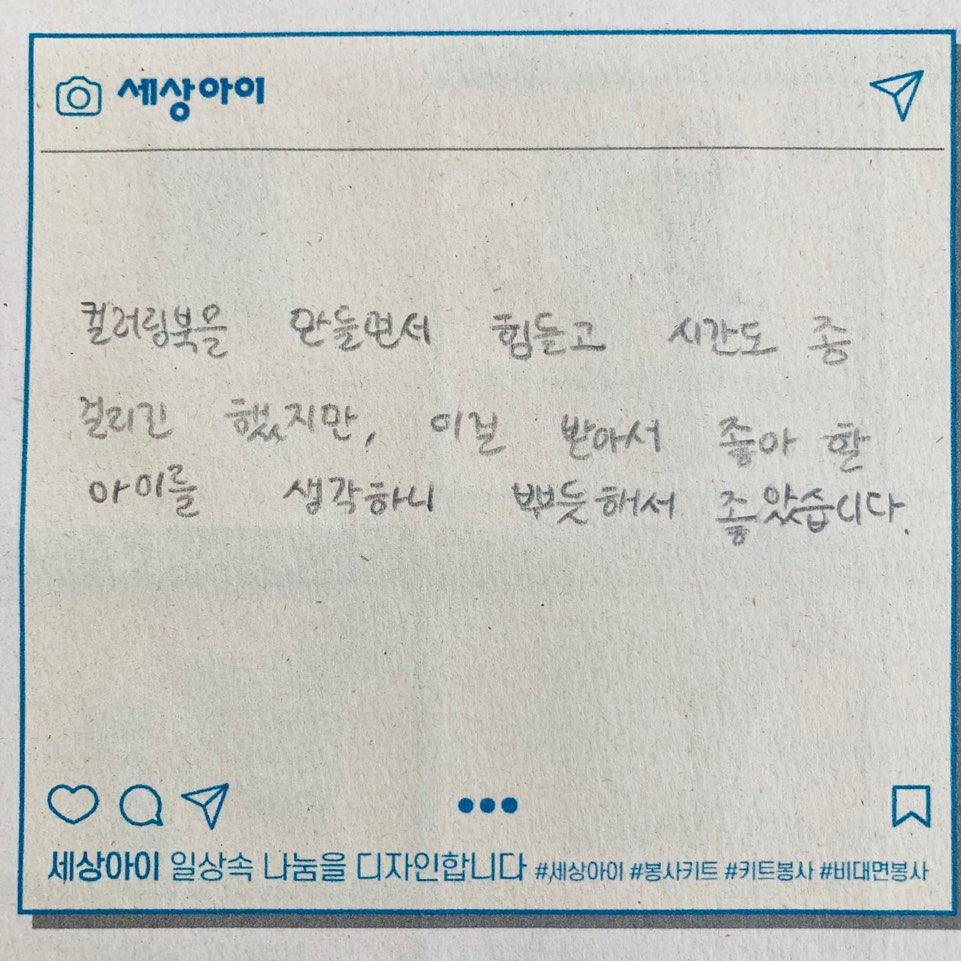 세상아이
컬러링북을 만들면서 힘들고 시간도 좀
걸리긴 했지만, 이걸 받아서 좋아 할
아이를 생각하니 뿌듯해서 좋았습니다.
세상아이 일상속 나눔을 디자인합니다 #세상아이 #봉사키트 #키트봉사 #비대면봉사